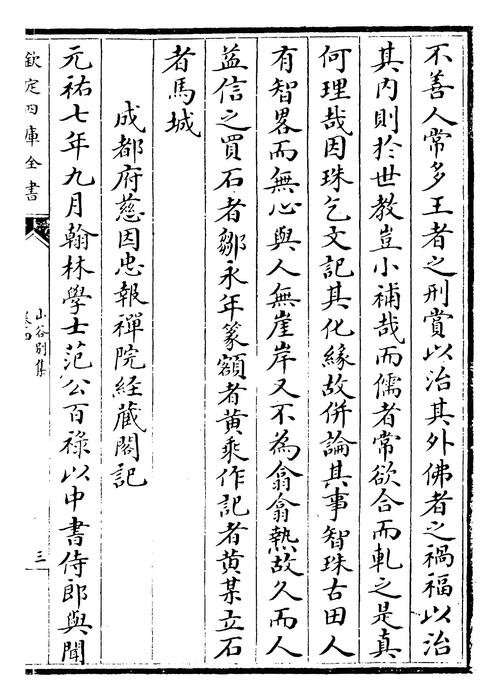 不善人常多王者之刑賞以治其外佛者之禍福以治
其内則於世教豈小補哉而儒者常欲合而軋之是真
何理哉因珠乞文記其化緣故併論其事智珠古田人
有智畧而無心與人無崖岸又不為翕翕熱故久而人
益信之買石者鄒永年篆額者黄乘作記者黄某立石
者馬城
成都府慈因忠報禪院經藏閣記
元祐七年九月翰林學士范公百禄以中書侍郎與聞
欽定四庫全書
山谷别集
卷四
三